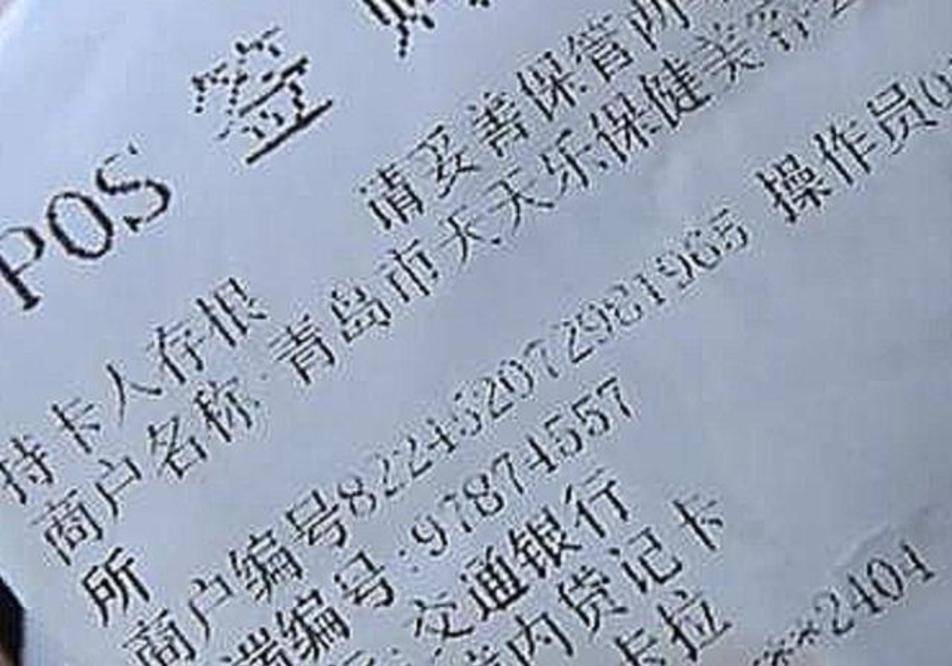 POS 签购
持卡人存根 请妥善保管两
商户名称:青岛市天天乐保健美容
所
商户编号822452072981965 操作员
端编号:97874557
交通银行
内贷记卡
卡拉
**2404